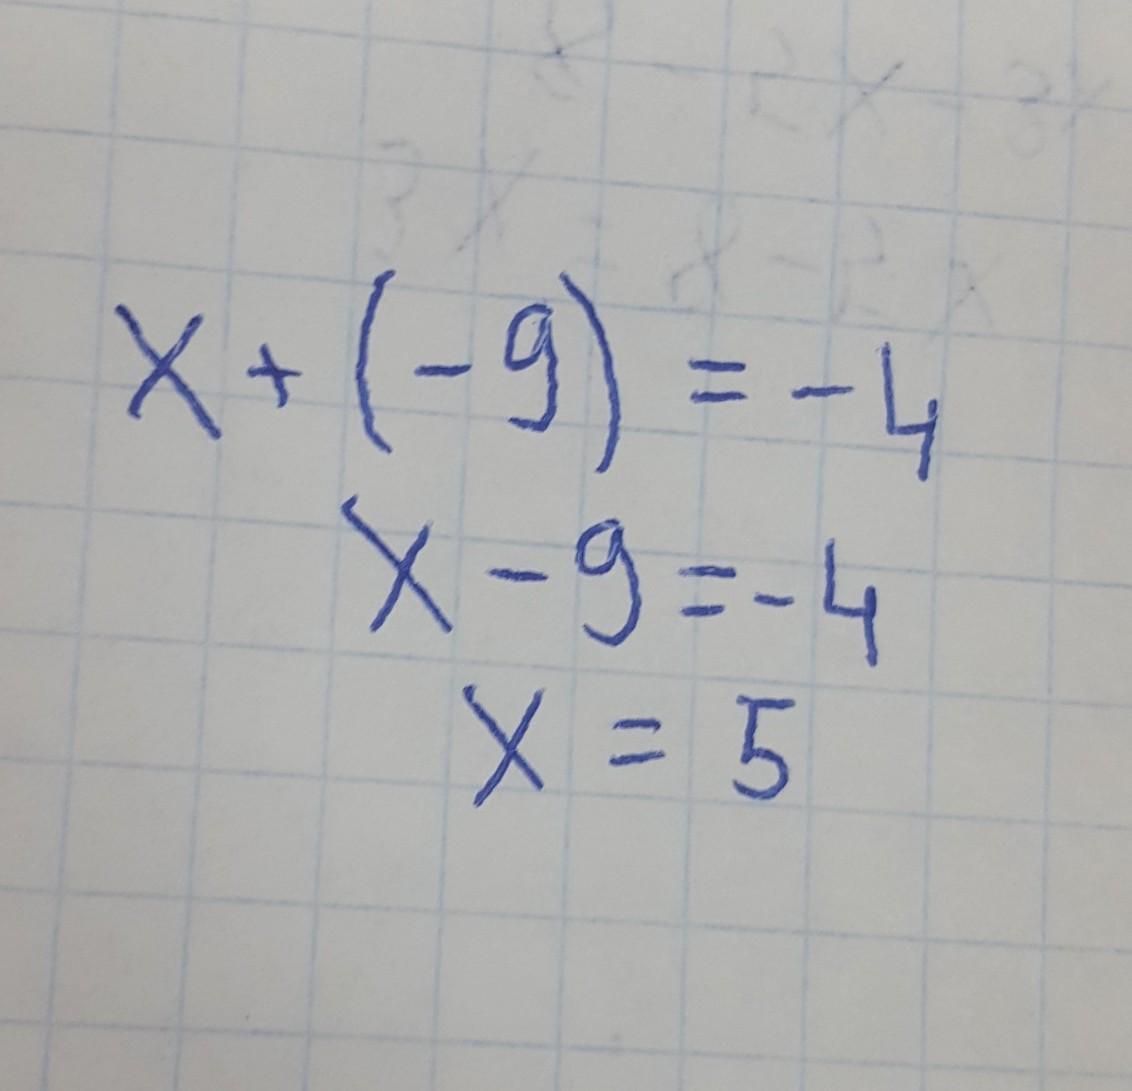 x + (-9) = -4
x - 9 = -4
x = 5